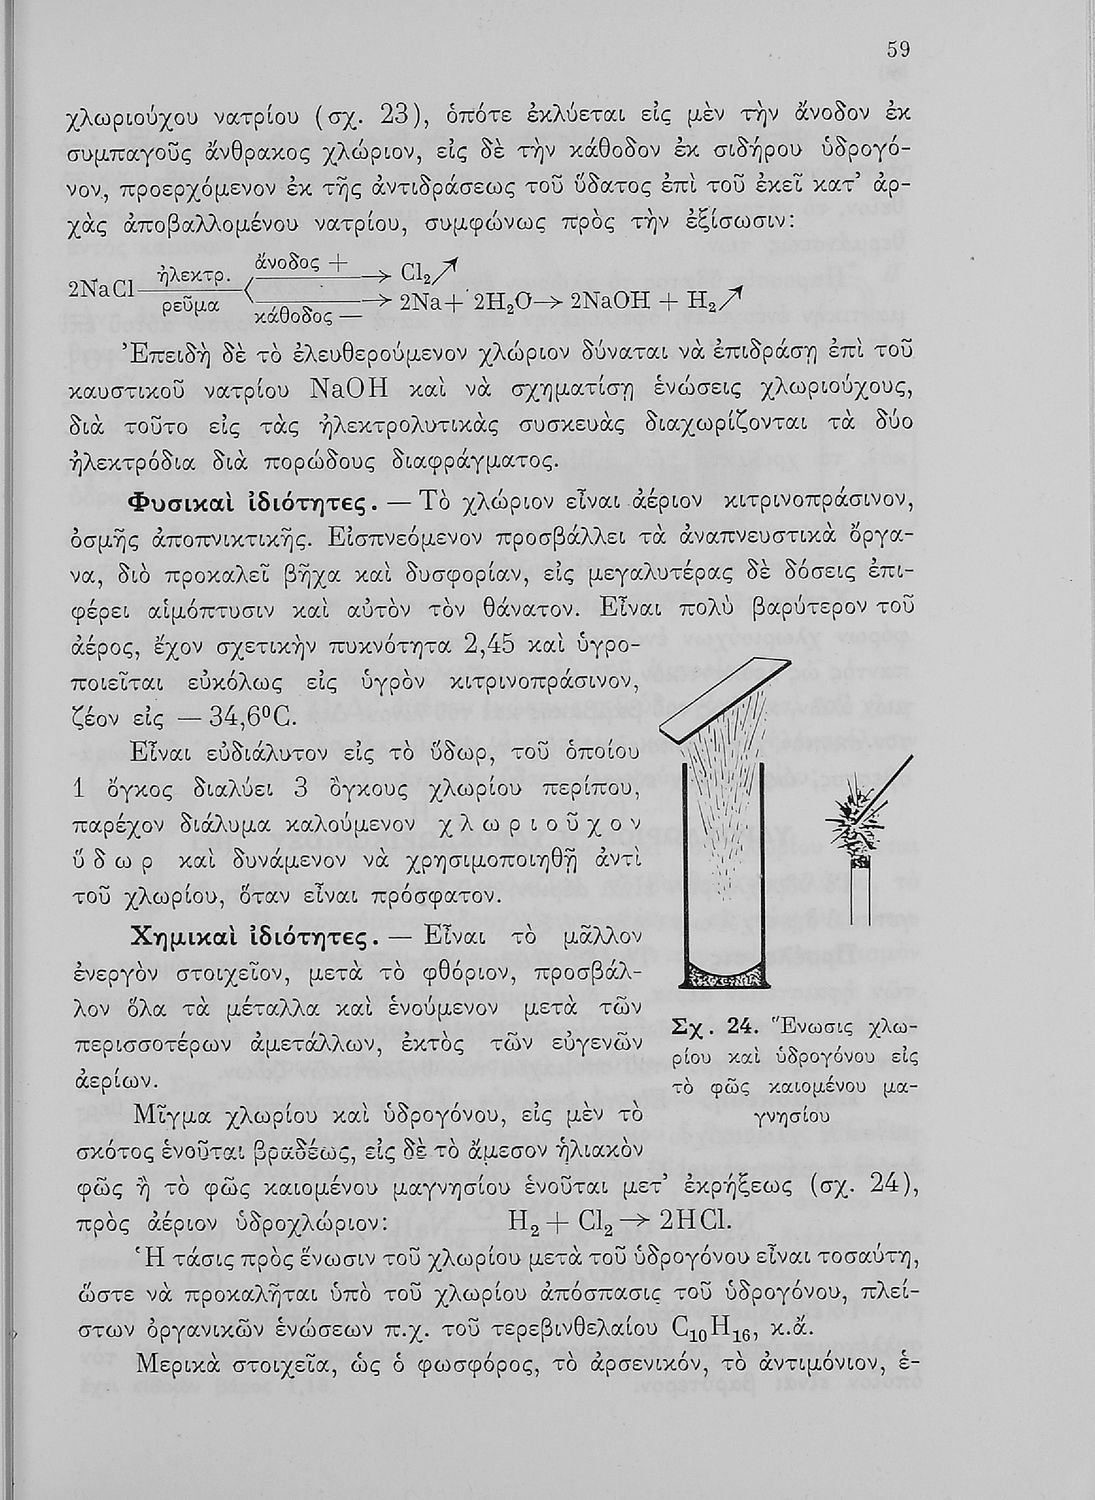 59
χλωριούχου νατρίου (σχ. 23), ὁπότε ἐκλύεται εἰς μὲν τὴν ἄνοδον ἐκ
συμπαγοῦς ἄνθρακος χλώριον, εἰς δὲ τὴν κάθοδον ἐκ σιδήρου ὑδρογό-
νον, προερχόμενον ἐκ τῆς ἀντιδράσεως τοῦ ὕδατος ἐπὶ τοῦ ἐκεῖ κατ' ἀρ-
χὰς ἀποβαλλομένου νατρίου, συμφώνως πρὸς τὴν ἐξίσωσιν:
2NaCl ἠλεκτρ. ρεῦμα ἄνοδος + → Cl₂↗
κάθοδος — → 2Na + 2H₂O → 2NaOH + H₂↗
Ἐπειδὴ δὲ τὸ ἐλευθερούμενον χλώριον δύναται νὰ ἐπιδράσῃ ἐπὶ τοῦ
καυστικοῦ νατρίου NaOH καὶ νὰ σχηματίσῃ ἑνώσεις χλωριούχους,
διὰ τοῦτο εἰς τὰς ἠλεκτρολυτικὰς συσκευὰς διαχωρίζονται τὰ δύο
ἠλεκτρόδια διὰ πορώδους διαφράγματος.
Φυσικαὶ ἰδιότητες. — Τὸ χλώριον εἶναι ἀέριον κιτρινοπράσινον,
ὀσμῆς ἀποπνικτικῆς. Εἰσπνεόμενον προσβάλλει τὰ ἀναπνευστικὰ ὄργα-
να, διὸ προκαλεῖ βῆχα καὶ δυσφορίαν, εἰς μεγαλυτέρας δὲ δόσεις ἐπι-
φέρει αἱμόπτυσιν καὶ αὐτὸν τὸν θάνατον. Εἶναι πολὺ βαρύτερον τοῦ
ἀέρος, ἔχον σχετικὴν πυκνότητα 2,45 καὶ ὑγρο-
ποιεῖται εὐκόλως εἰς ὑγρὸν κιτρινοπράσινον,
ζέον εἰς — 34,6⁰C.
Εἶναι εὐδιάλυτον εἰς τὸ ὕδωρ, τοῦ ὁποίου
1 ὄγκος διαλύει 3 ὄγκους χλωρίου περίπου,
παρέχον διάλυμα καλούμενον χλωριοῦχον
ὕδωρ καὶ δυνάμενον νὰ χρησιμοποιηθῇ ἀντὶ
τοῦ χλωρίου, ὅταν εἶναι πρόσφατον.
Χημικαὶ ἰδιότητες. — Εἶναι τὸ μᾶλλον
ἐνεργὸν στοιχεῖον, μετὰ τὸ φθόριον, προσβάλ-
λον ὅλα τὰ μέταλλα καὶ ἑνούμενον μετὰ τῶν
περισσοτέρων ἀμετάλλων, ἐκτὸς τῶν εὐγενῶν
ἀερίων.
Μῖγμα χλωρίου καὶ ὑδρογόνου, εἰς μὲν τὸ
σκότος ἑνοῦται βραδέως, εἰς δὲ τὸ ἄμεσον ἡλιακὸν
φῶς ἢ τὸ φῶς καιομένου μαγνησίου ἑνοῦται μετ' ἐκρήξεως (σχ. 24),
πρὸς ἀέριον ὑδροχλώριον: H₂ + Cl₂ → 2HCl.
Ἡ τάσις πρὸς ἕνωσιν τοῦ χλωρίου μετὰ τοῦ ὑδρογόνου εἶναι τοσαύτη,
ὥστε νὰ προκαλῆται ὑπὸ τοῦ χλωρίου ἀπόσπασις τοῦ ὑδρογόνου, πλεί-
στων ὀργανικῶν ἑνώσεων π.χ. τοῦ τερεβινθελαίου C₁₀H₁₆, κ.ἄ.
Μερικὰ στοιχεῖα, ὡς ὁ φωσφόρος, τὸ ἀρσενικόν, τὸ ἀντιμόνιον, ἑ-
Σχ. 24. Ἕνωσις χλω-
ρίου καὶ ὑδρογόνου εἰς
τὸ φῶς καιομένου μα-
γνησίου